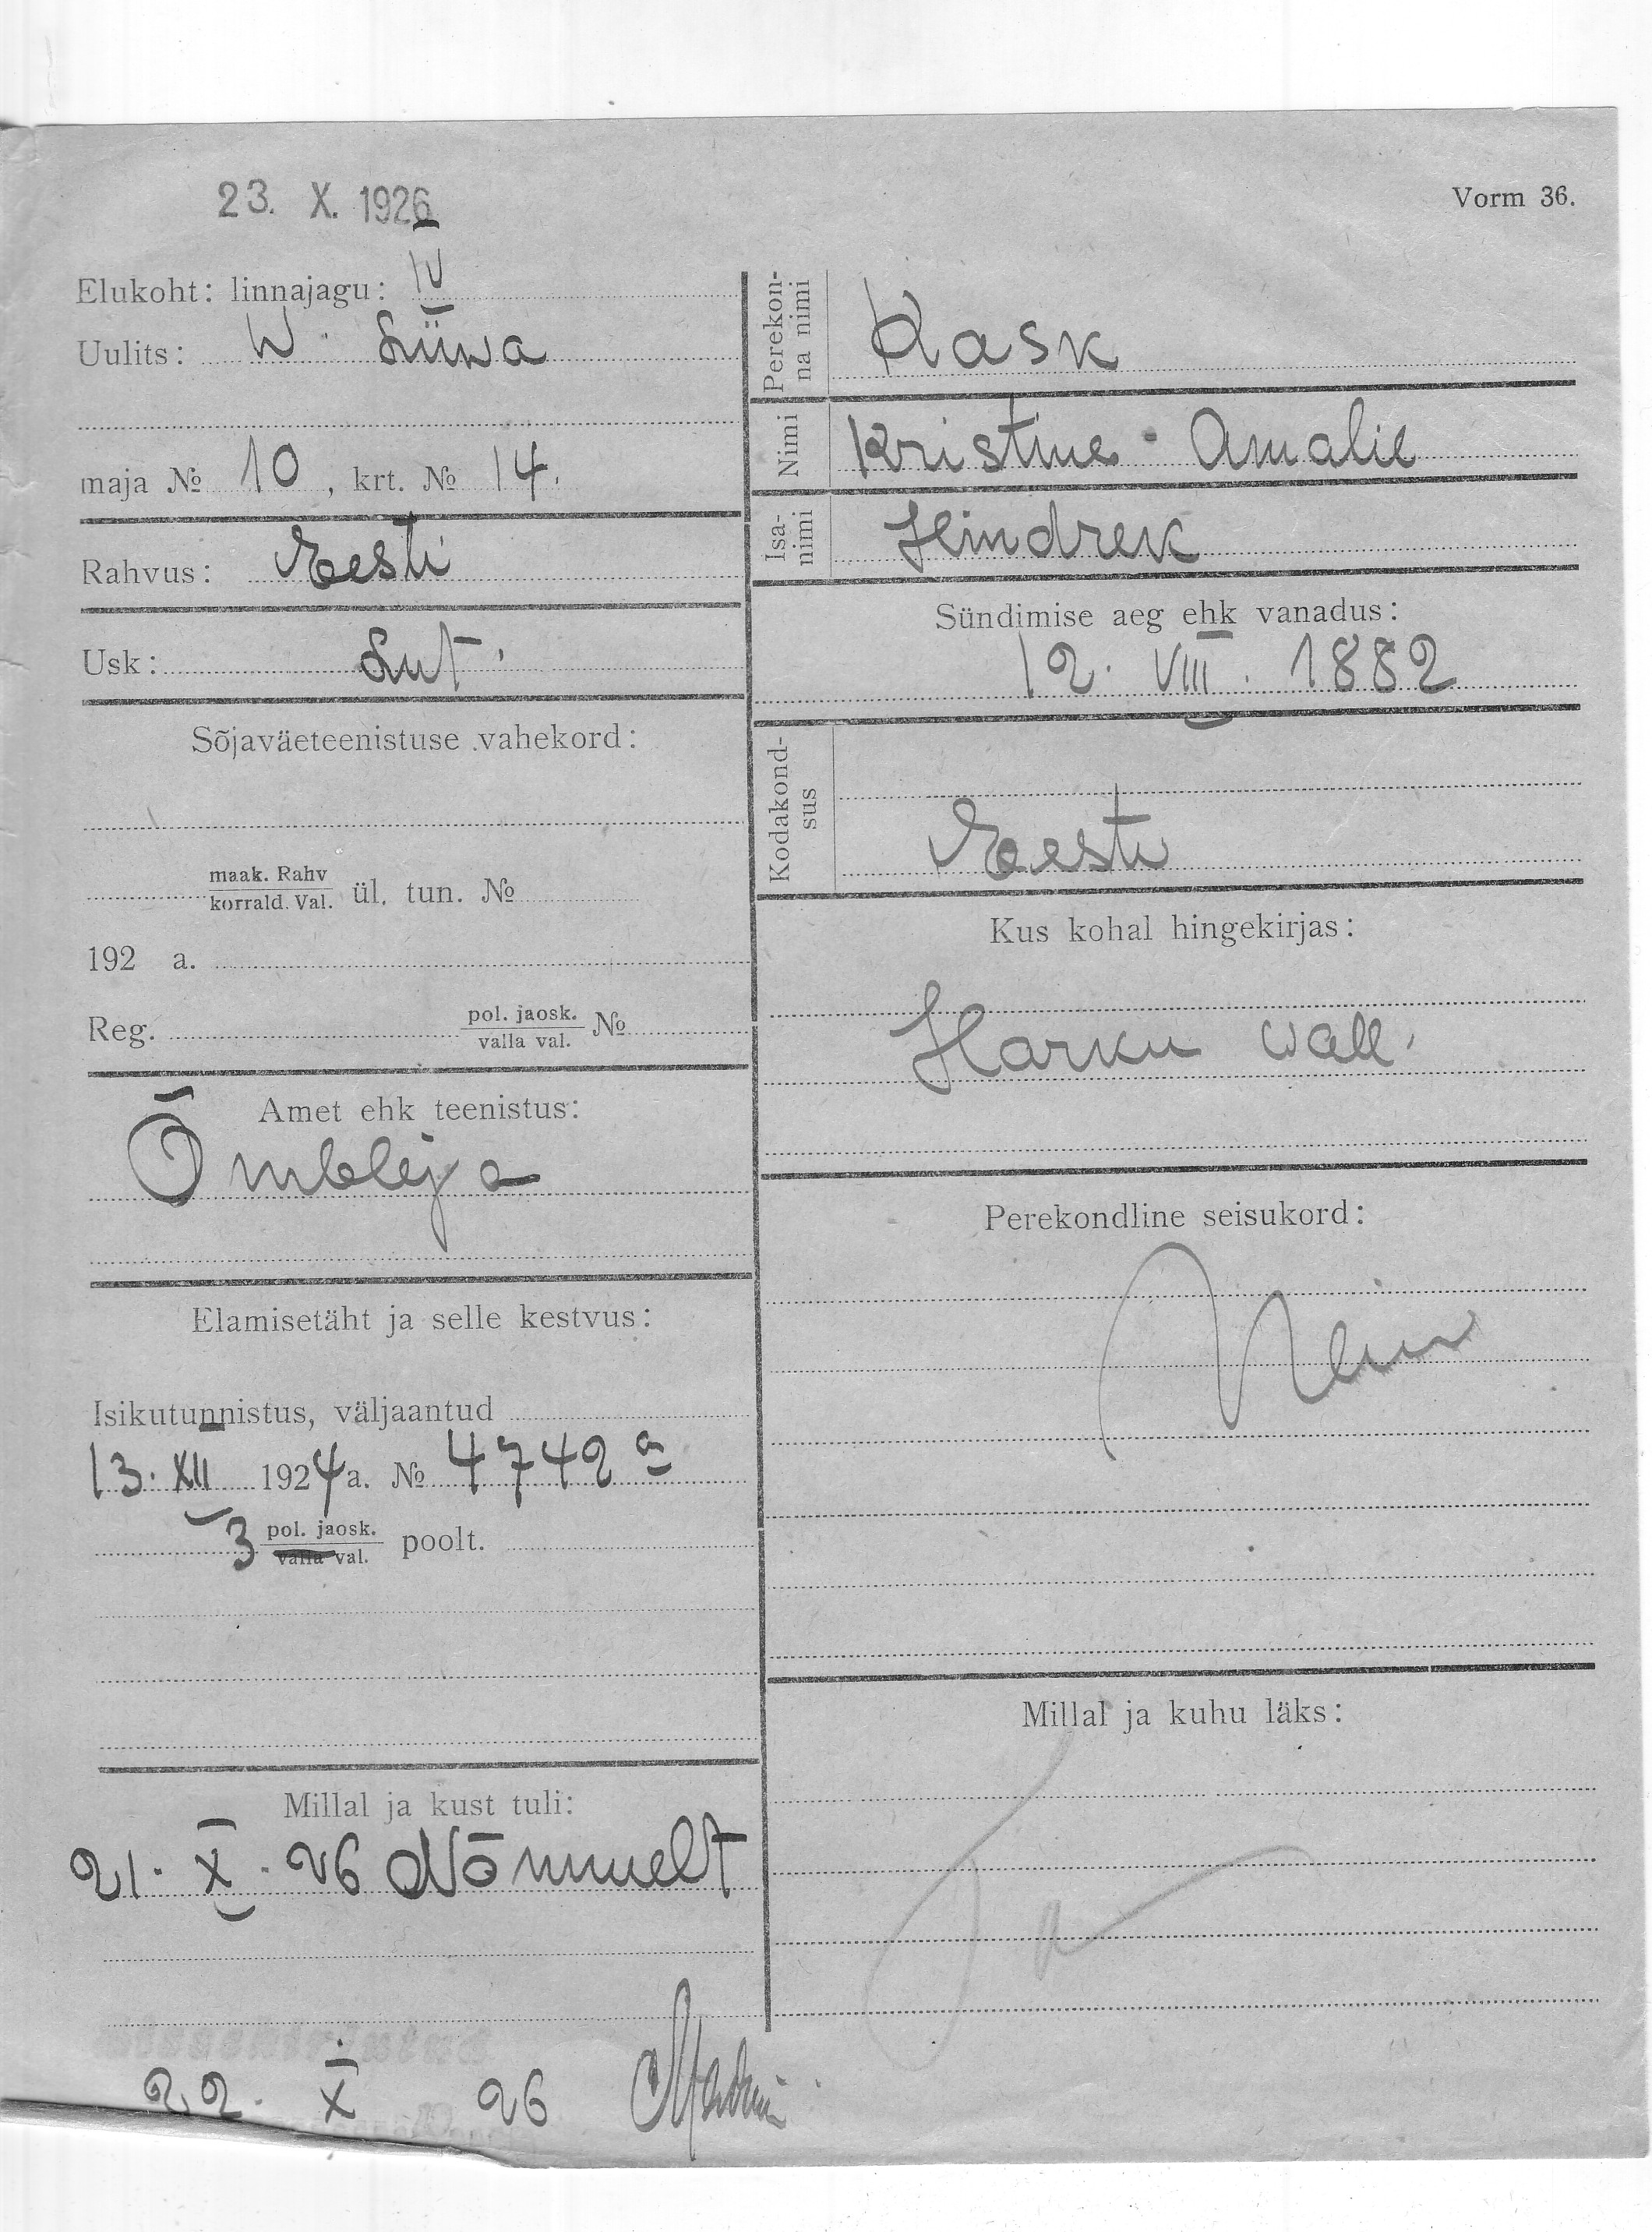 23. X. 1926
Vorm 36.
Elukoht: linnajagu: IV
Uulits: W. Liiwa
maja № 10, krt. № 14.
Rahvus: Eesti
Usk: Lut.
Sõjaväeteenistuse vahekord:
maak. Rahv
korrald. Val. ül. tun. №
192 a.
Reg. pol. jaosk. №
valla val.
Amet ehk teenistus:
Õmbleja
Elamisetäht ja selle kestvus:
Isikutunnistus, väljaantud
13. XII 1924 a. № 4742 a
3 pol. jaosk. poolt.
valla val.
Millal ja kust tuli:
21. X. 26 Nõmmelt
22. X 26
Perekonna nimi
Kask
Nimi
Kristine - Amalie
Isanimi
Hindrek
Sündimise aeg ehk vanadus:
12. VIII. 1882
Kodakondsus
Eesti
Kus kohal hingekirjas:
Harku wall.
Perekondline seisukord:
Millal ja kuhu läks: